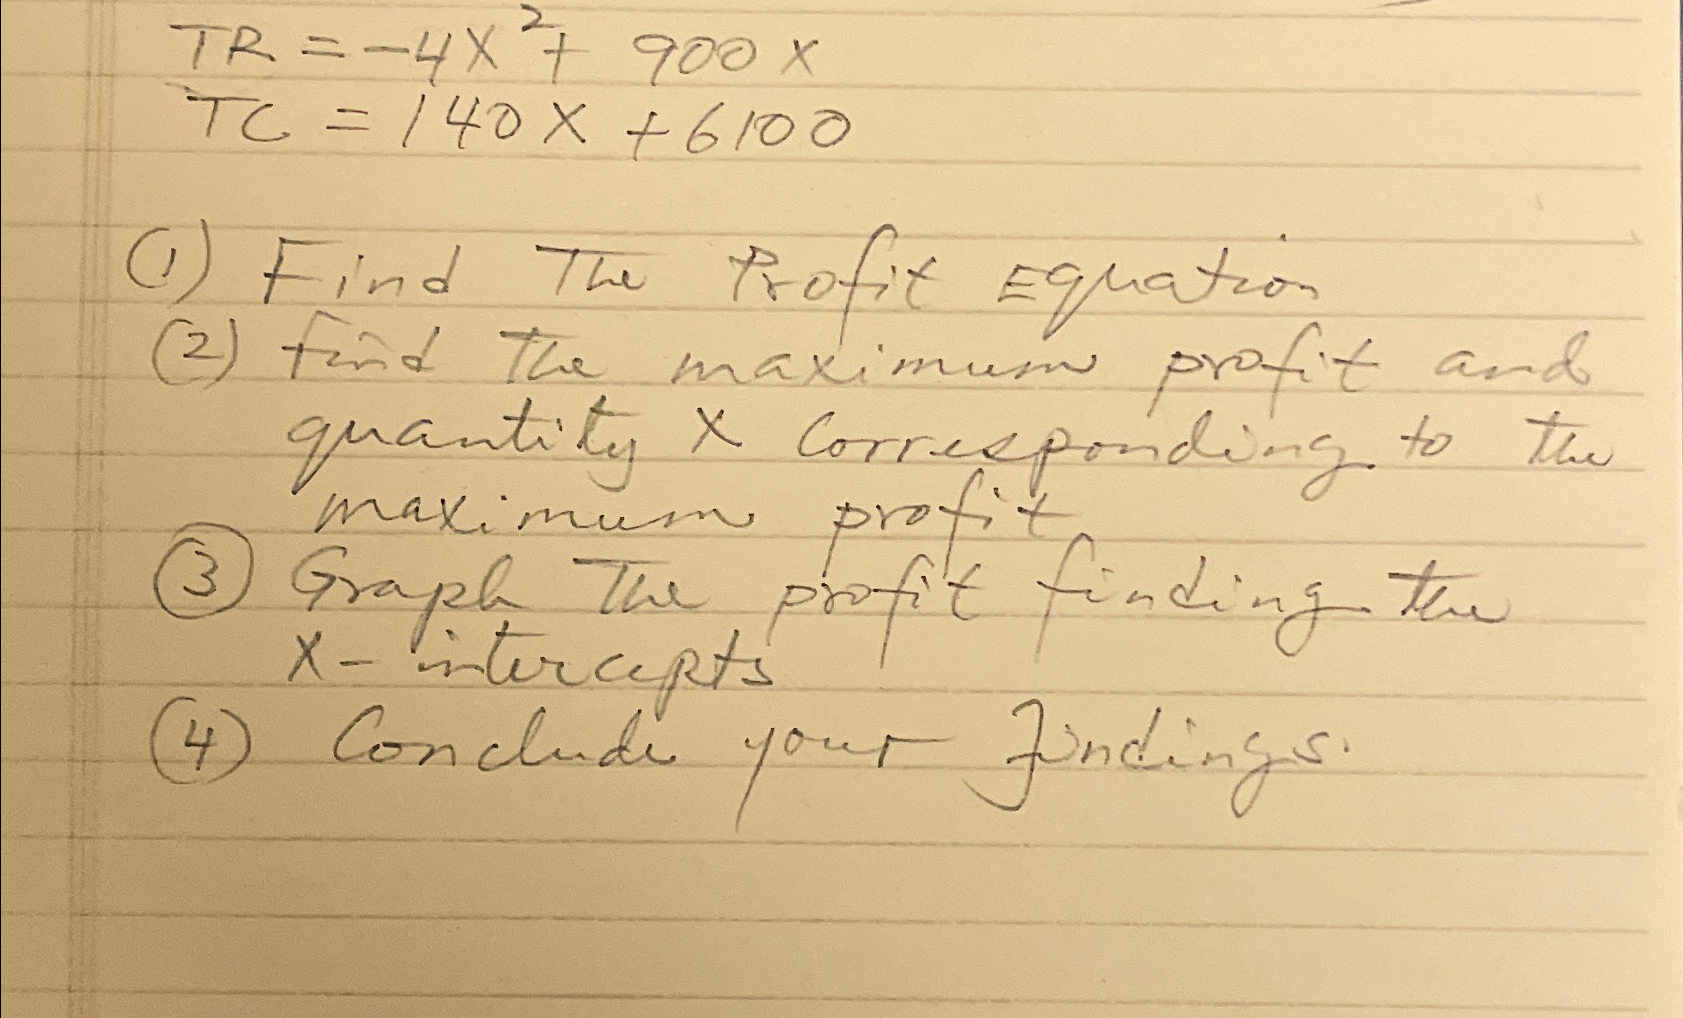 TR = -4X² + 900X
TC = 140X + 6100
(1) Find The Profit Equation
(2) Find The maximum profit and
quantity X Corresponding to the
maximum profit
(3) Graph The profit finding the
X-intercepts
(4) Conclude your Findings.